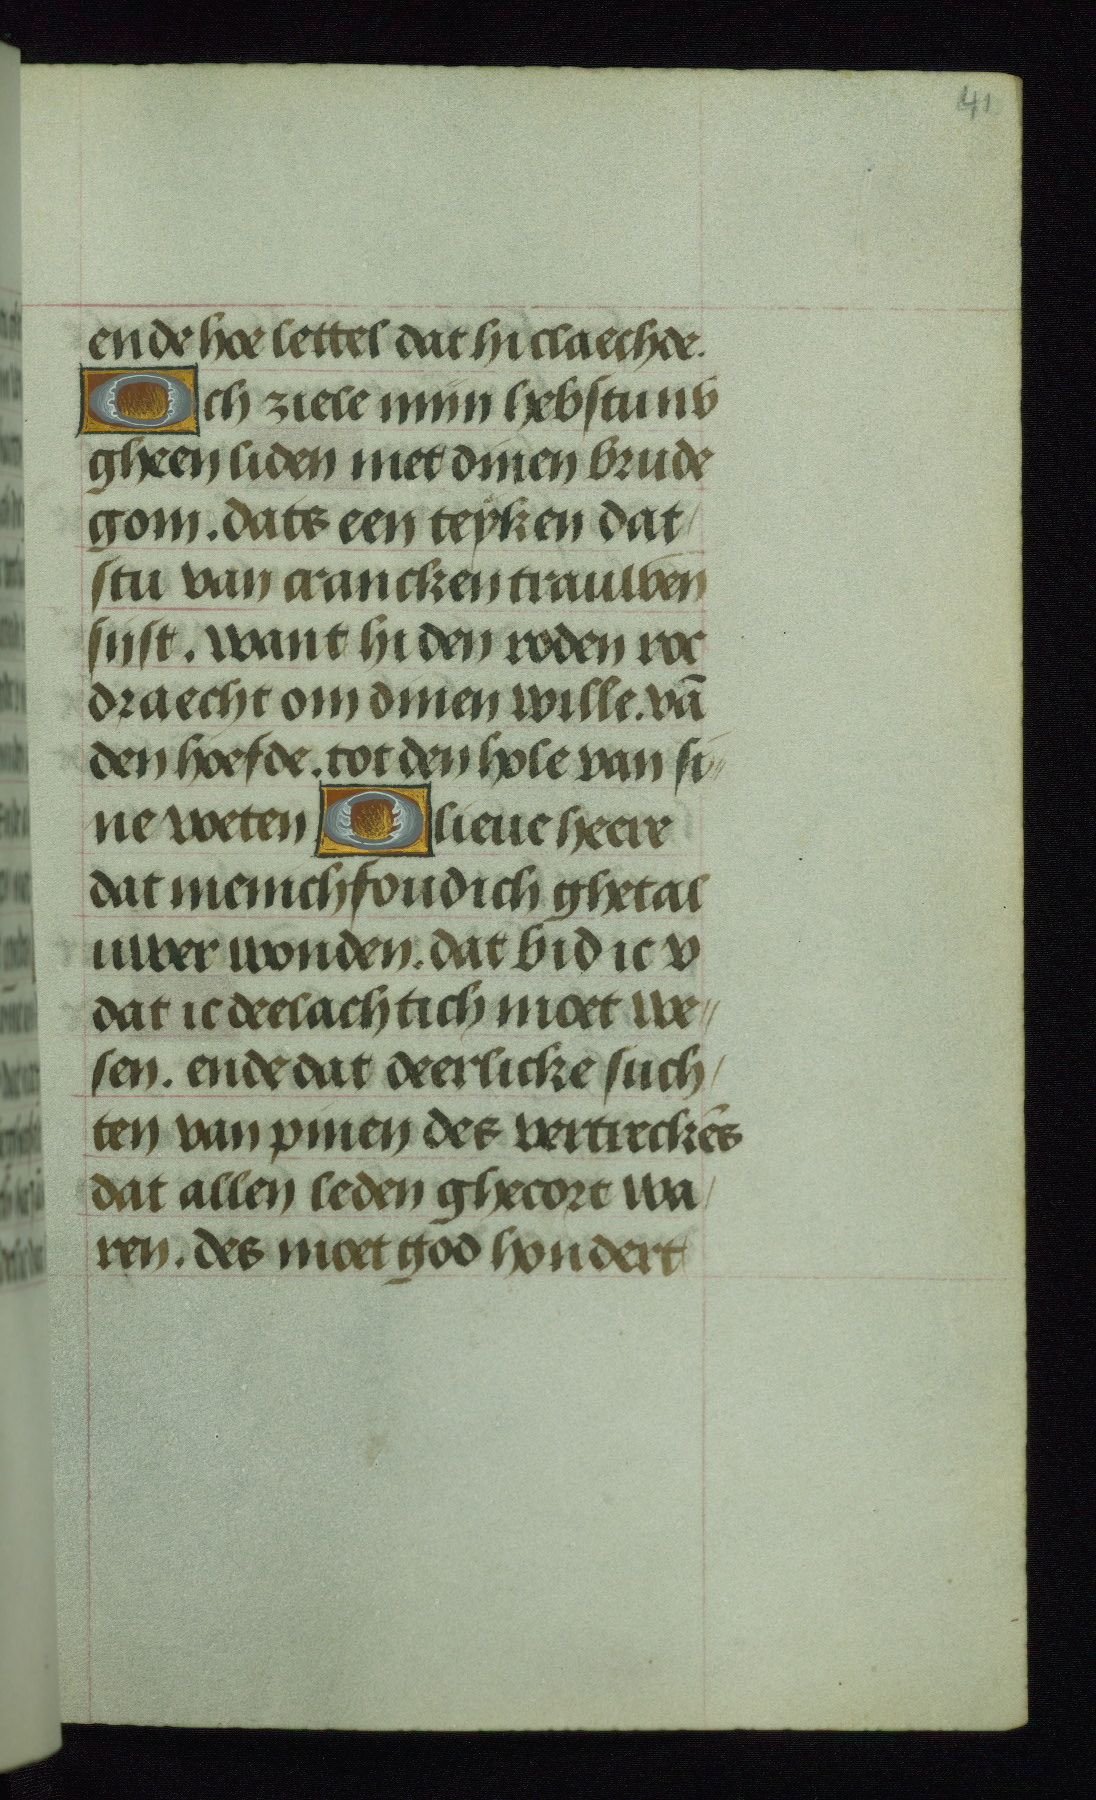 41
ende hoe lettel dat hi claechde.
Och ziele mijn hebstu nv
gheen liden met dinen brude
gom. dats een teyken dat
stu van crancken trauwen
sijst. want hi den roden roc
draecht om dinen wille. vā
den hoefde. tot den hole van si
ne weten O lieue heere
dat menichfoudich ghetal
uwer wonden. dat bid ic v
dat ic deelachtich moet we
sen. ende dat deerlicke such
ten van pinen des vertreckēs
dat allen leden ghecort wa
ren. des moet god hondert